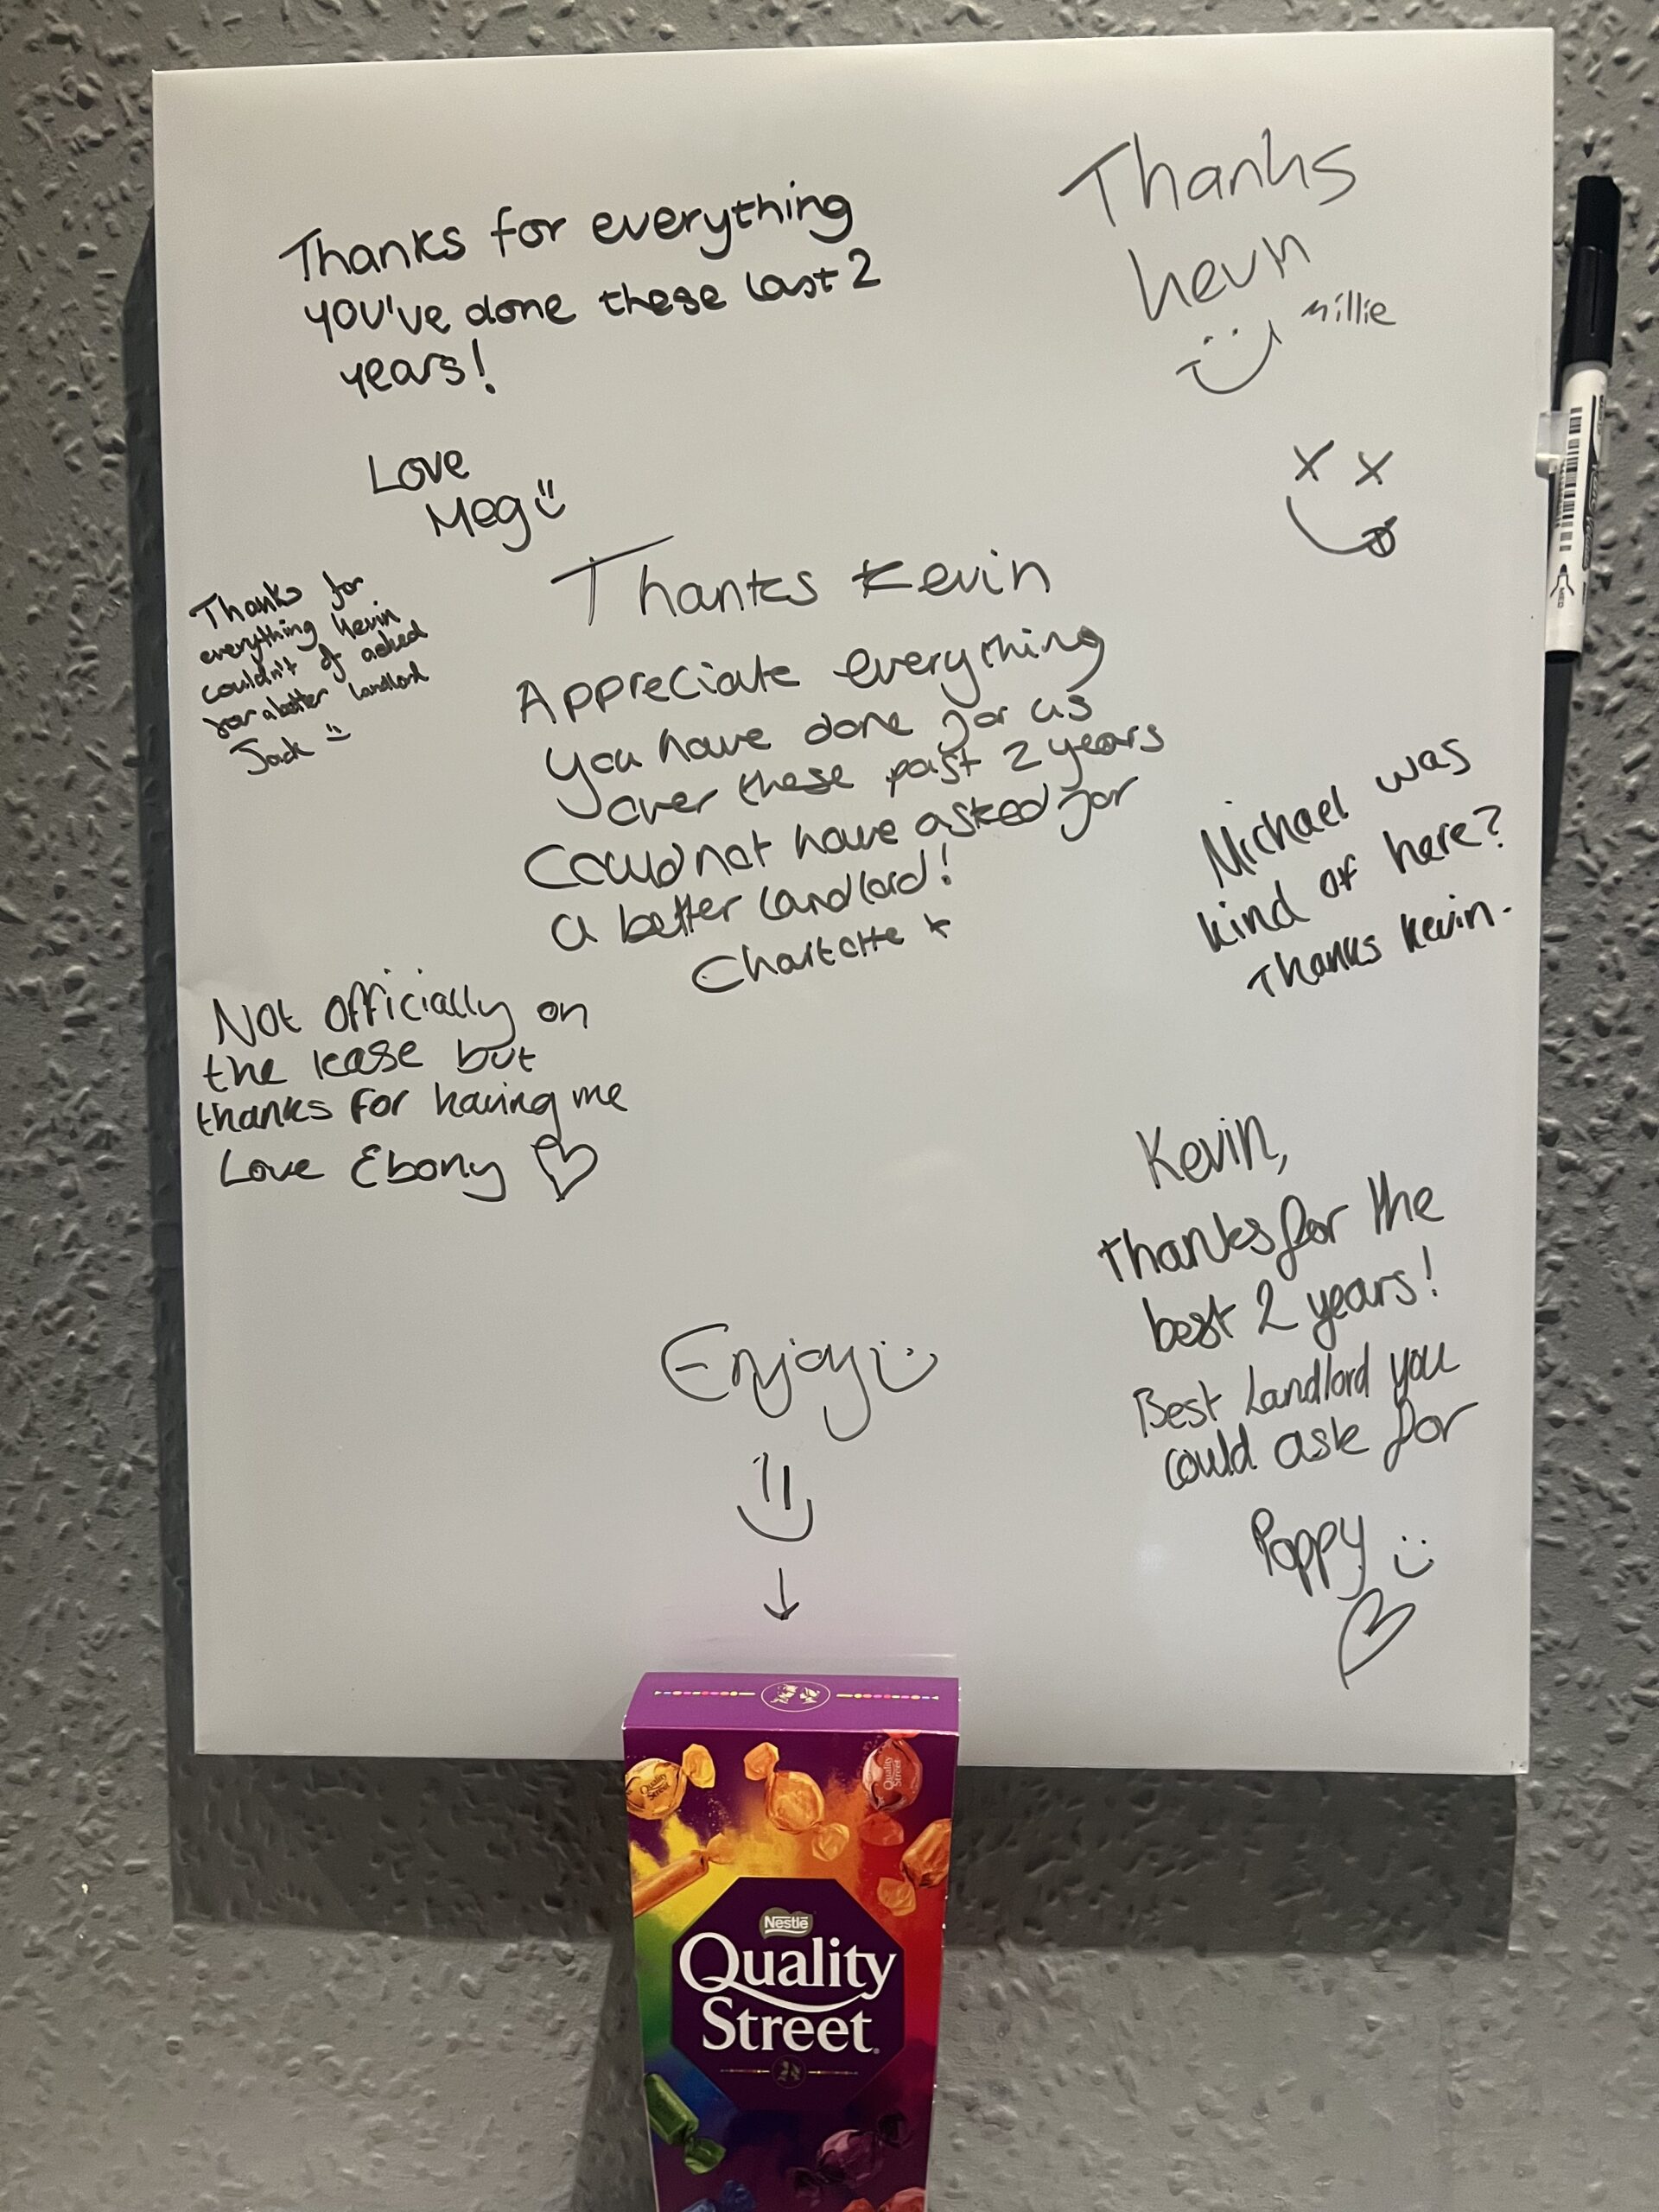 Thanks for everything
you've done these last 2
years!
Love
Meg
Thanks
Kevin
Millie
Thanks for
everything Kevin
couldn't of asked
for a better landlord
Jack
Thanks Kevin
Appreciate everything
you have done for us
over these past 2 years
Could not have asked for
a better landlord!
Charlotte x
Michael was
kind of here?
Thanks Kevin.
Not officially on
the lease but
thanks for having me
Love Ebony
Kevin,
Thanks for the
best 2 years!
Best Landlord you
could ask for
Poppy
Enjoy
Nestlé
Quality
Street
Quality
Street
Quality
Street
MED